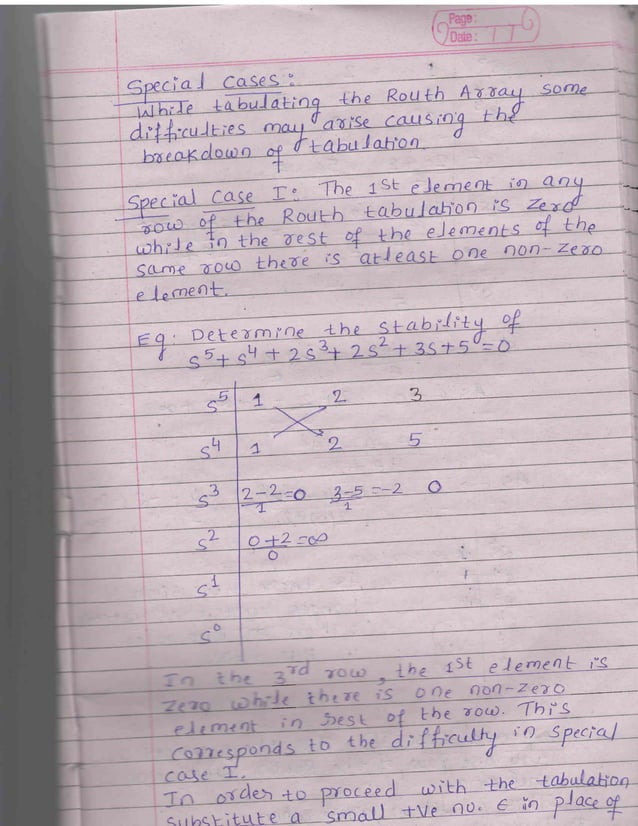 Page:
Date:
Special cases:
While tabulating the Routh Array some
difficulties may arise causing the
breakdown of tabulation
Special case I: The 1st element in any
row of the Routh tabulation is zero
while in the rest of the elements of the
same row there is atleast one non-zero
element.
Eg: Determine the stability of
s⁵ + s⁴ + 2s³ + 2s² + 3s + 5 = 0
s⁵ 1 2 3
s⁴ 1 2 5
s³ (2-2)/1 = 0 (3-5)/1 = -2 0
s² (0+2)/0 = ∞
s¹
s⁰
In the 3rd row, the 1st element is
zero while there is one non-zero
element in rest of the row. This
corresponds to the difficulty in special
case I.
In order to proceed with the tabulation
substitute a small +ve no. ∈ in place of